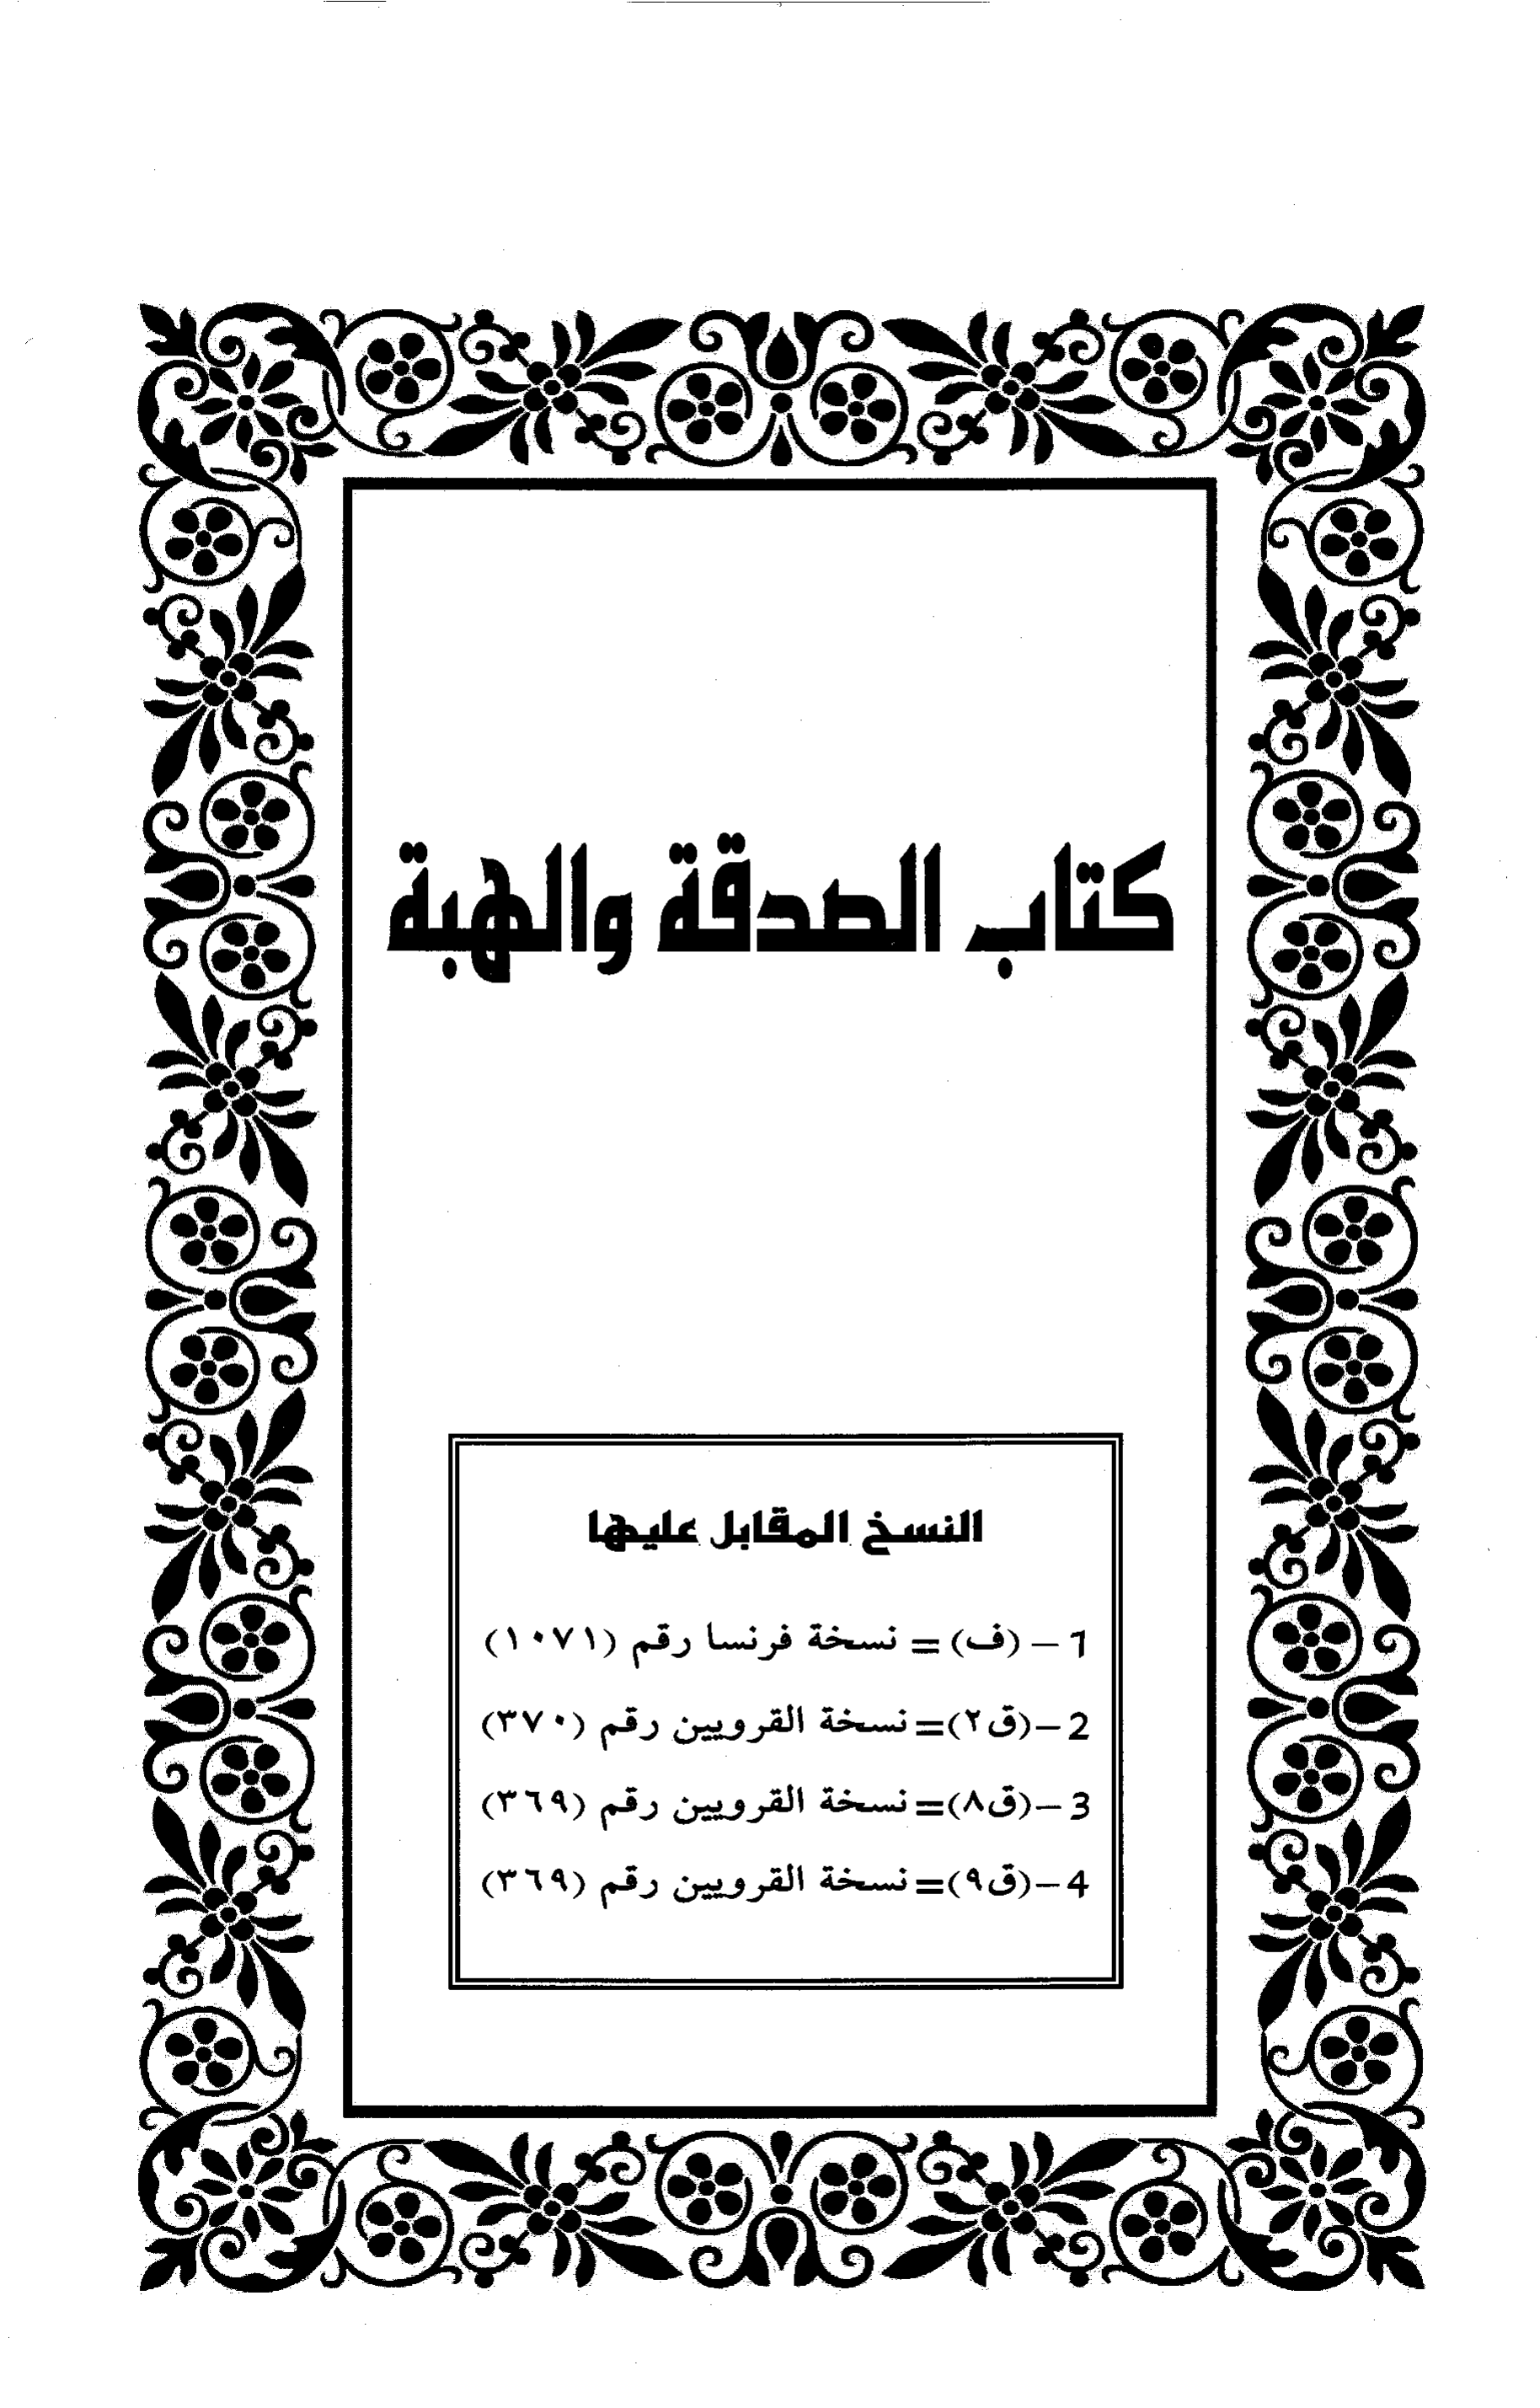 كتاب الصدقة والهبة
النسخ المقابل عليها
1 - (ف) = نسخة فرنسا رقم (١٠٧١)
2 - (ق٢) = نسخة القرويين رقم (٣٧٠)
3 - (ق٨) = نسخة القرويين رقم (٣٦٩)
4 - (ق٩) = نسخة القرويين رقم (٣٦٩)